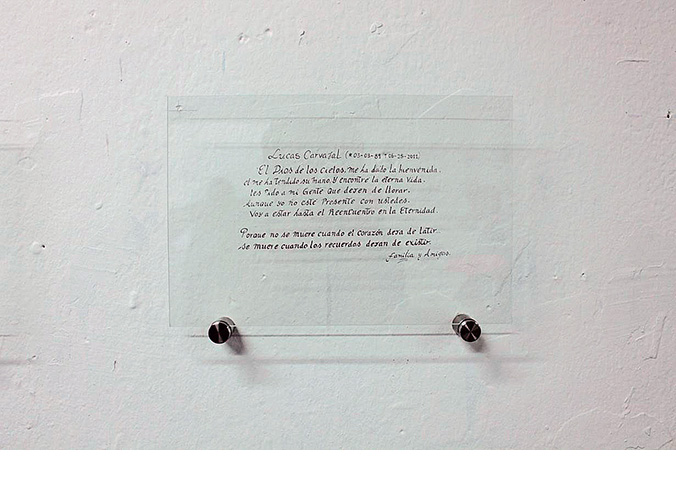 Lucas Carvajal (*03-03-89 †06-25-2011)
El Dios de los cielos, me ha dado la bienvenida.
el me ha tendido su mano. Y encontre la eterna vida.
les Pido a mi Gente que dejen de llorar.
Aunque yo no esté Presente con ustedes.
Voy a estar hasta el Reencuentro en la Eternidad.
Porque no se muere cuando el corazón deja de latir.
Se muere cuando los recuerdos dejan de existir.
familia y Amigos.